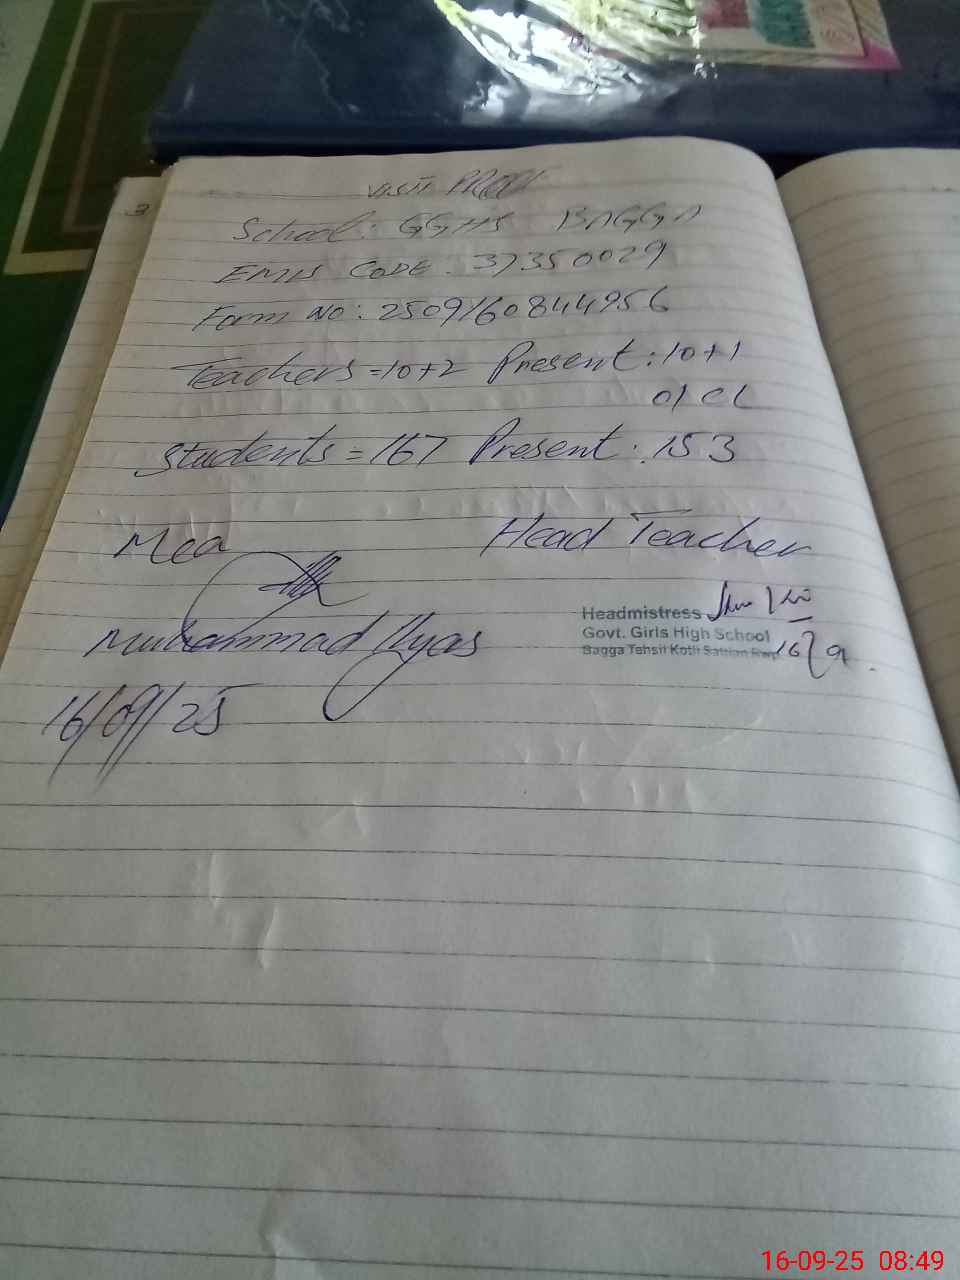 3
VISIT PROOF
School: GGHS BAGGA
EMIS CODE: 37350029
Form No: 2509160844956
Teachers = 10+2 Present: 10+1
01 CL
Students = 167 Present: 153
Mea Head Teacher
Headmistress
Govt. Girls High School
Bagga Tehsil Kotli Sattian Rwp
16/9
Muhammad Ilyas
16/09/25
16-09-25 08:49